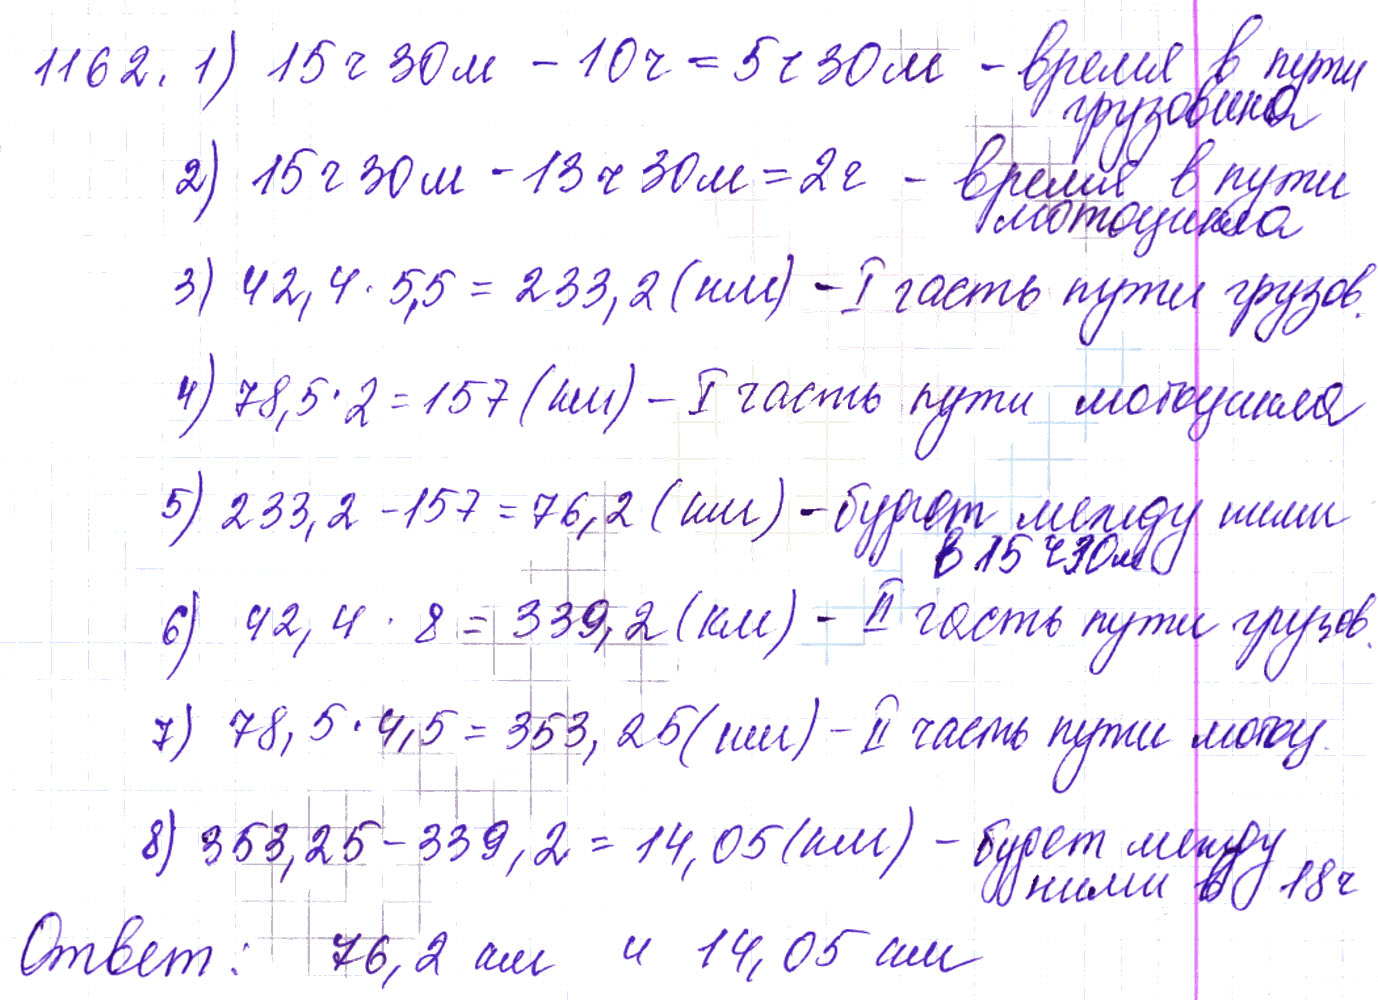 1162. 1) 15ч 30м - 10ч = 5ч 30м - время в пути
грузовика
2) 15ч 30м - 13ч 30м = 2ч - время в пути
мотоцикла
3) 42,4 · 5,5 = 233,2 (км) - I часть пути грузов.
4) 78,5 · 2 = 157 (км) - I часть пути мотоцикла
5) 233,2 - 157 = 76,2 (км) - будет между ними
в 15 ч 30м
6) 42,4 · 8 = 339,2 (км) - II часть пути грузов.
7) 78,5 · 4,5 = 353,25 (км) - II часть пути мотоц.
8) 353,25 - 339,2 = 14,05 (км) - будет между
ними в 18ч
Ответ: 76,2 км и 14,05 км